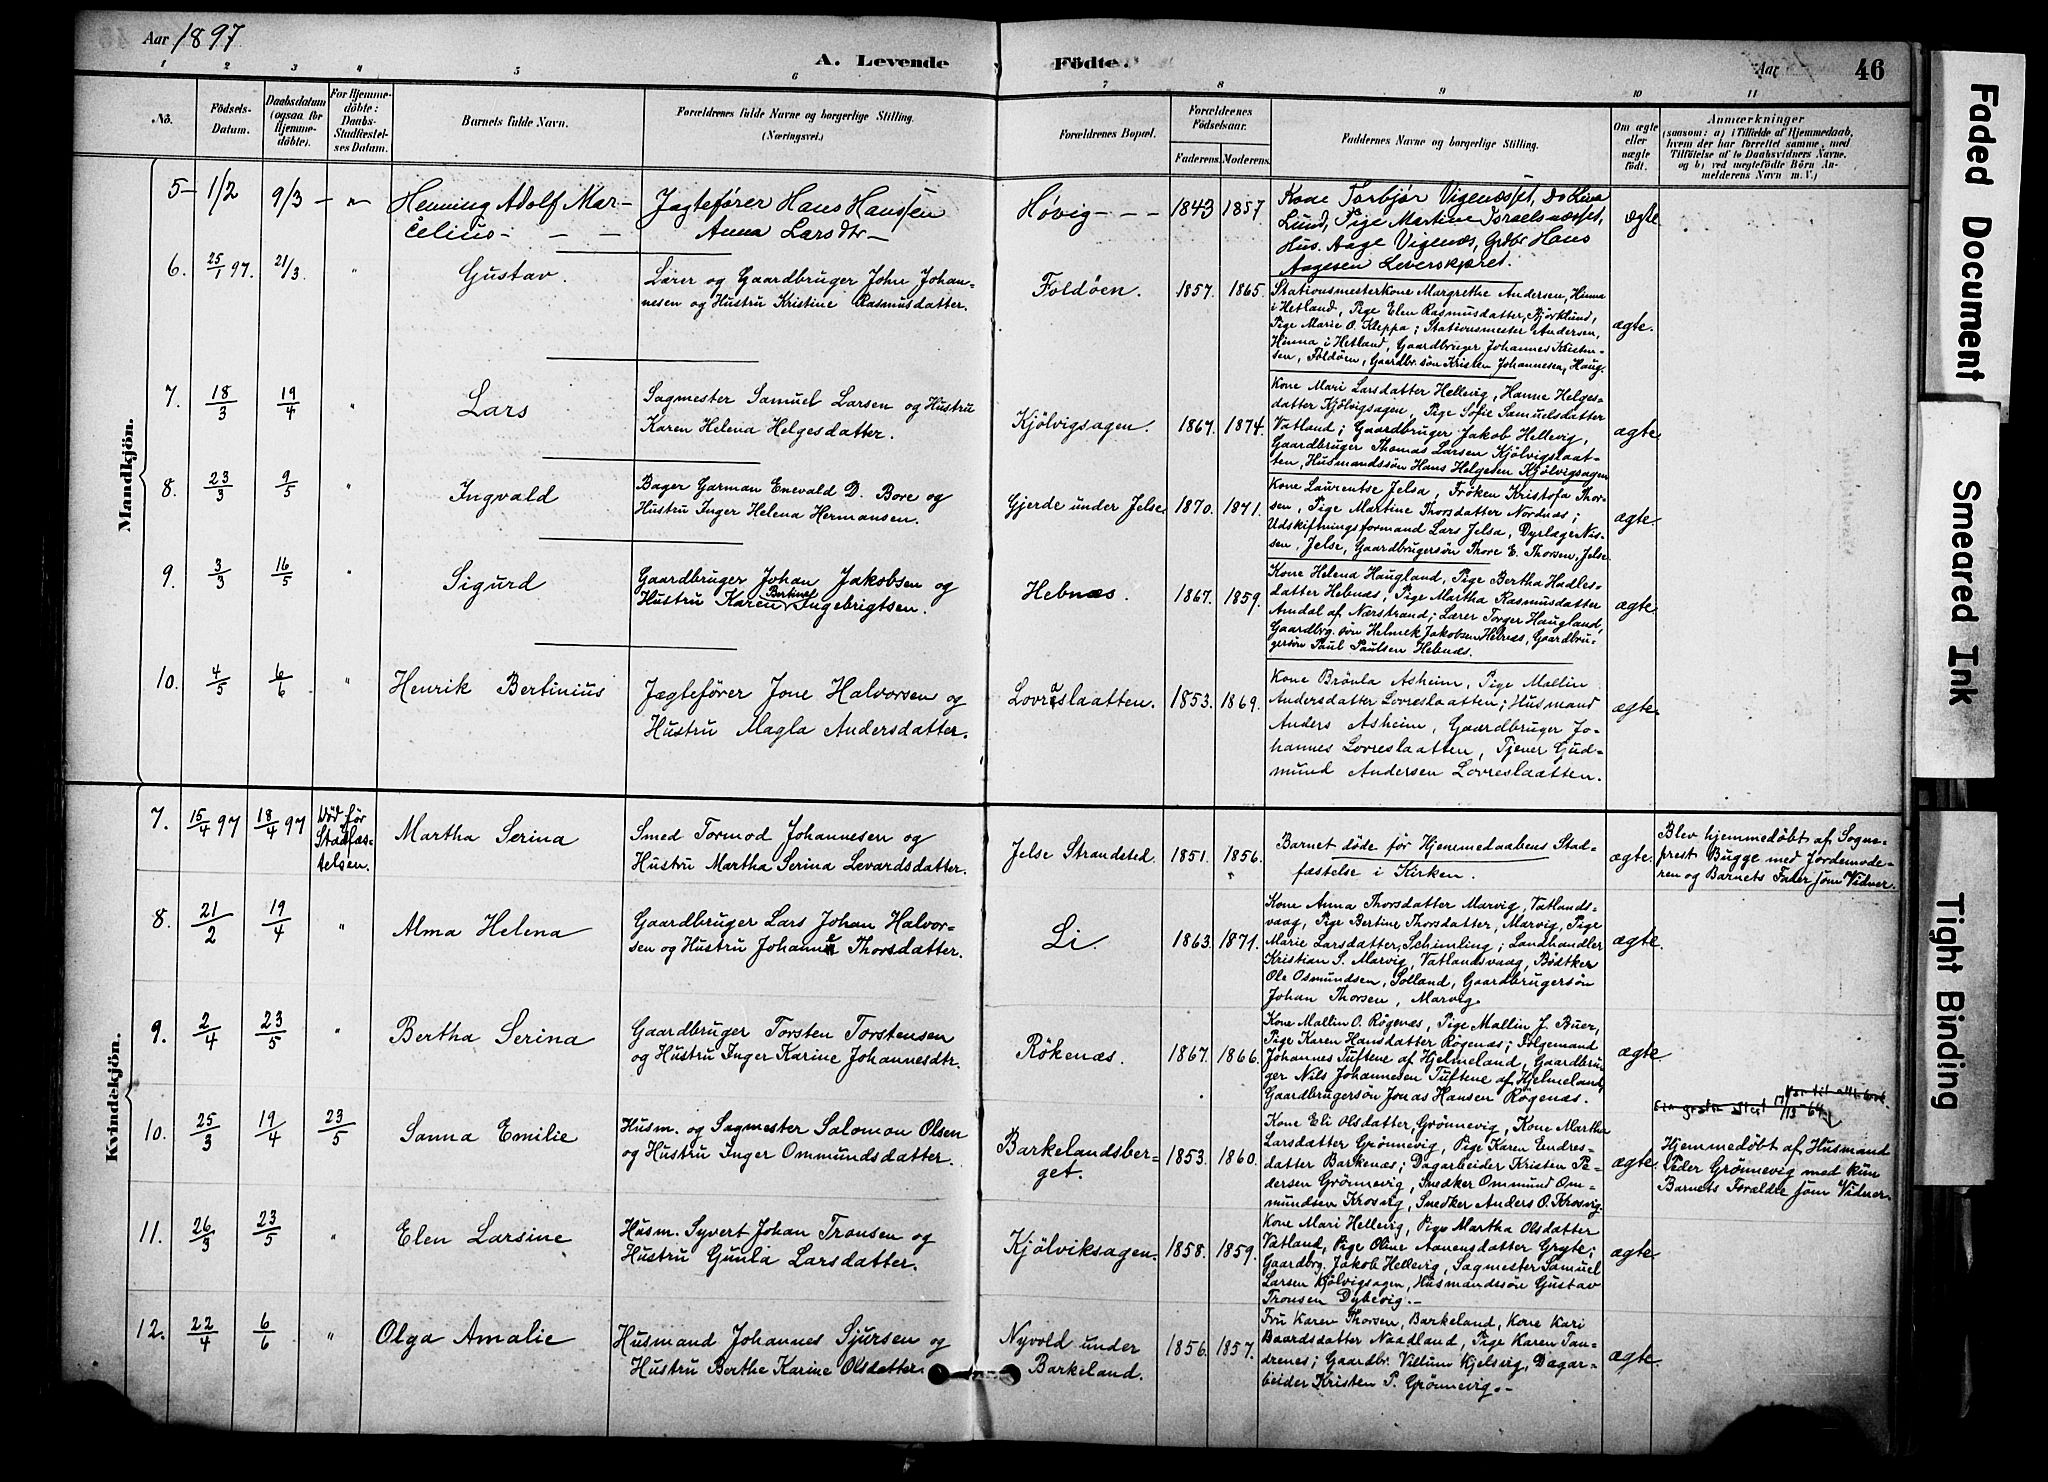 Aar 1897
A. Levende Födte.
Aar
46
1 2 3 4 5 6 7 8 9 10 11
No.
Födsels-Datum.
Daabsdatum (ogsaa for Hjemmedöbte).
For Hjemmedöbte: Daabs-Stadfæstelses Datum.
Barnets fulde Navn.
Forældrenes fulde Navne og borgerlige Stilling.
(Næringsvei.)
Forældrenes Bopæl.
Forældrenes Födselsaar.
Faderens. Moderens.
Faddernes Navne og borgerlige Stilling.
Om ægte eller uægte födt.
Anmærkninger
(saasom: a) i Tilfælde af Hjemmedaab, hvem der har forrettet samme, med Tilföielse af to Daabsvidners Navne, og b) ved uægtefödte Börn Anmelderens Navn m. V.)
Mandkjön.
5 - 1/2 9/3 - " - Henning Adolf Marcelius - Jagtefører Hans Hanssen
Anna Larsdtr -
Høvig - - - 1843 1857
Kone Torbjør Vigenæsset, Do Lina
Lund, Pige Martine Israelsnæsset,
Hus. Aage Vigenæs, Grdbr Hans
Aagesen Leverskjæret.
ægte
6. 25/1 97. 21/3. " Gustav. Lærer og Gaardbruger John Johannesen og Hustru Kristine Rasmusdatter.
Foldöen. 1857. 1865.
Stationsmesterkone Margrethe Andersen, Hinna
i Hetland, Pige Elen Rasmusdatter, Bjorklund,
Pige Marie O. Kleppa; Stationsmester Andersen,
Hinna i Hetland, Gaardbruger Johannes Kristensen, Foldöen, Gaardbr.sön Kristen Johannesen, Haug.
ægte.
7. 18/3 19/4 " Lars Sagmester Samuel Larsen og Hustru
Karen Helena Helgesdatter.
Kjölvigsagen. 1867. 1874.
Kone Mari Larsdatter Hellevig, Hanne Helgesdatter Kjölvigsagen, Pige Sofie Samuelsdatter
Vatland; Gaardbruger Jakob Hellevig,
Gaardbruger Thomas Larsen Kjölvigslaatten, Husmandssön Hans Helgesen Kjölvigsagen
ægte.
8. 23/3 9/5 " Ingvald Bager Garman Enevald D. Bore og
Hustru Inger Helena Hermansen.
Gjerde under Jelse 1870. 1871.
Kone Laurentse Jelsa, Fröken Kristofa Thorsen, Pige Martine Thorsdatter Nordnæs;
Udskiftningsformand Lars Jelsa, Dyrlæge Nussen, Jelse, Gaardbrugersön Thore E. Thorsen, Jelse
ægte.
9. 3/3 16/5 " Sigurd Gaardbruger Johan Jakobsen og
Hustru Karen Bertine Ingebrigtsen.
Hebnæs. 1867. 1859.
Kone Helena Haugland, Pige Bertha Hadlesdatter Hebnæs, Pige Martha Rasmusdatter
Amdal af Nærstrand; Lærer Torger Haugland,
Gaardbrg.sön Helmek Jakobsen Hebnæs, Gaardbrugersön Paul Paulsen Hebnæs.
ægte.
10. 4/5 6/6 " Henrik Bertinius Jægtefører Jone Halvorsen og
Hustru Magla Andersdatter.
Lovraslaatten. 1853. 1869.
Kone Brönla Asheim, Pige Mallin
Andersdatter Lovreslaatten; Husmand
Anders Asheim, Gaardbruger Johannes Lovreslaatten, Tjener Gudmund Andersen Lovreslaatten.
ægte.
Kvindekjön.
7. 15/4 97 18/4 97 Död för Stadfæstelsen.
Martha Serina Smed Tormod Johannesen og
Hustru Martha Serina Levardsdatter.
Jelse Strandsted. 1851. 1856.
Barnet döde för Hjemmedaabens Stadfæstelse i Kirken.
ægte.
Blev hjemmedöbt af Sogneprest Bugge med Jordemoderen og Barnets Fader som Vidner.
8. 21/2 19/4 " Alma Helena Gaardbruger Lars Johan Halvorsen og Hustru Johanne Thorsdatter.
Li. 1863. 1871.
Kone Anna Thorsdatter Marvig, Vatlandsvaag, Pige Bertine Thorsdatter, Marvig, Pige
Marie Larsdatter, Schimling; Landhandler
Kristian S. Marvig, Vatlandsvaag, Bödtker
Ole Osmundsen, Solland, Gaardbrugersön
Johan Thorsen, Marvig.
ægte.
9. 2/4 23/5 " Bertha Serina Gaardbruger Torsten Torstensen
og Hustru Inger Karine Johannesdtr.
Rökenæs. 1867. 1866.
Kone Mallin O. Røgenæs, Pige Mallin J. Buer,
Pige Karen Hansdatter Røgenæs; Fölgemand
Johannes Tuftene af Hjelmeland, Gaardbruger Nils Johannesen Tuftene af Hjelmeland,
Gaardbrugersön Jonas Hansen Røgenæs.
ægte.
10. 25/3 19/4 23/5 Sanna Emilie Husm. og Sagmester Salomon Olsen
og Hustru Inger Ommundsdatter.
Barkelandsberget. 1853. 1860.
Kone Eli Olsdatter, Grönnevig, Kone Martha
Larsdatter Grönnevig, Pige Karen Endresdatter Barkenæs; Dagarbeider Kristen Pedersen Grönnevig, Snedker Ommund Ommundsen Krosvig, Snedker Anders O. Krosvig.
ægte.
Hjemmedöbt af Husmand
Peder Grönnevig med kun
Barnets Forældre som Vidner.
11. 26/3 23/5 " Elen Larsine Husm. Syvert Johan Tronsen og
Hustru Gunla Larsdatter.
Kjölviksagen. 1858. 1859.
Kone Mari Hellevig, Pige Martha Olsdatter
Vatland, Pige Oline Aanensdatter Gryte;
Gaardbrg. Jakob Hellevig, Sagmester Samuel
Larsen Kjölvigsagen, Husmandssön Gustav
Tronsen Dybevig. -
ægte.
12. 22/4 6/6 " Olga Amalie Husmand Johannes Sjursen og
Hustru Berthe Karine Olsdatter.
Nyvold under
Barkeland.
1856. 1857.
Fru Karen Thorsen, Barkeland, Kone Kari
Baardsdatter Naadland, Pige Karen Tandrenes; Gaardbr. Villum Kjelsvig, Dagarbeider Kristen P. Grönnevig. -
ægte.
Faded Document
Smeared Ink
Tight Binding